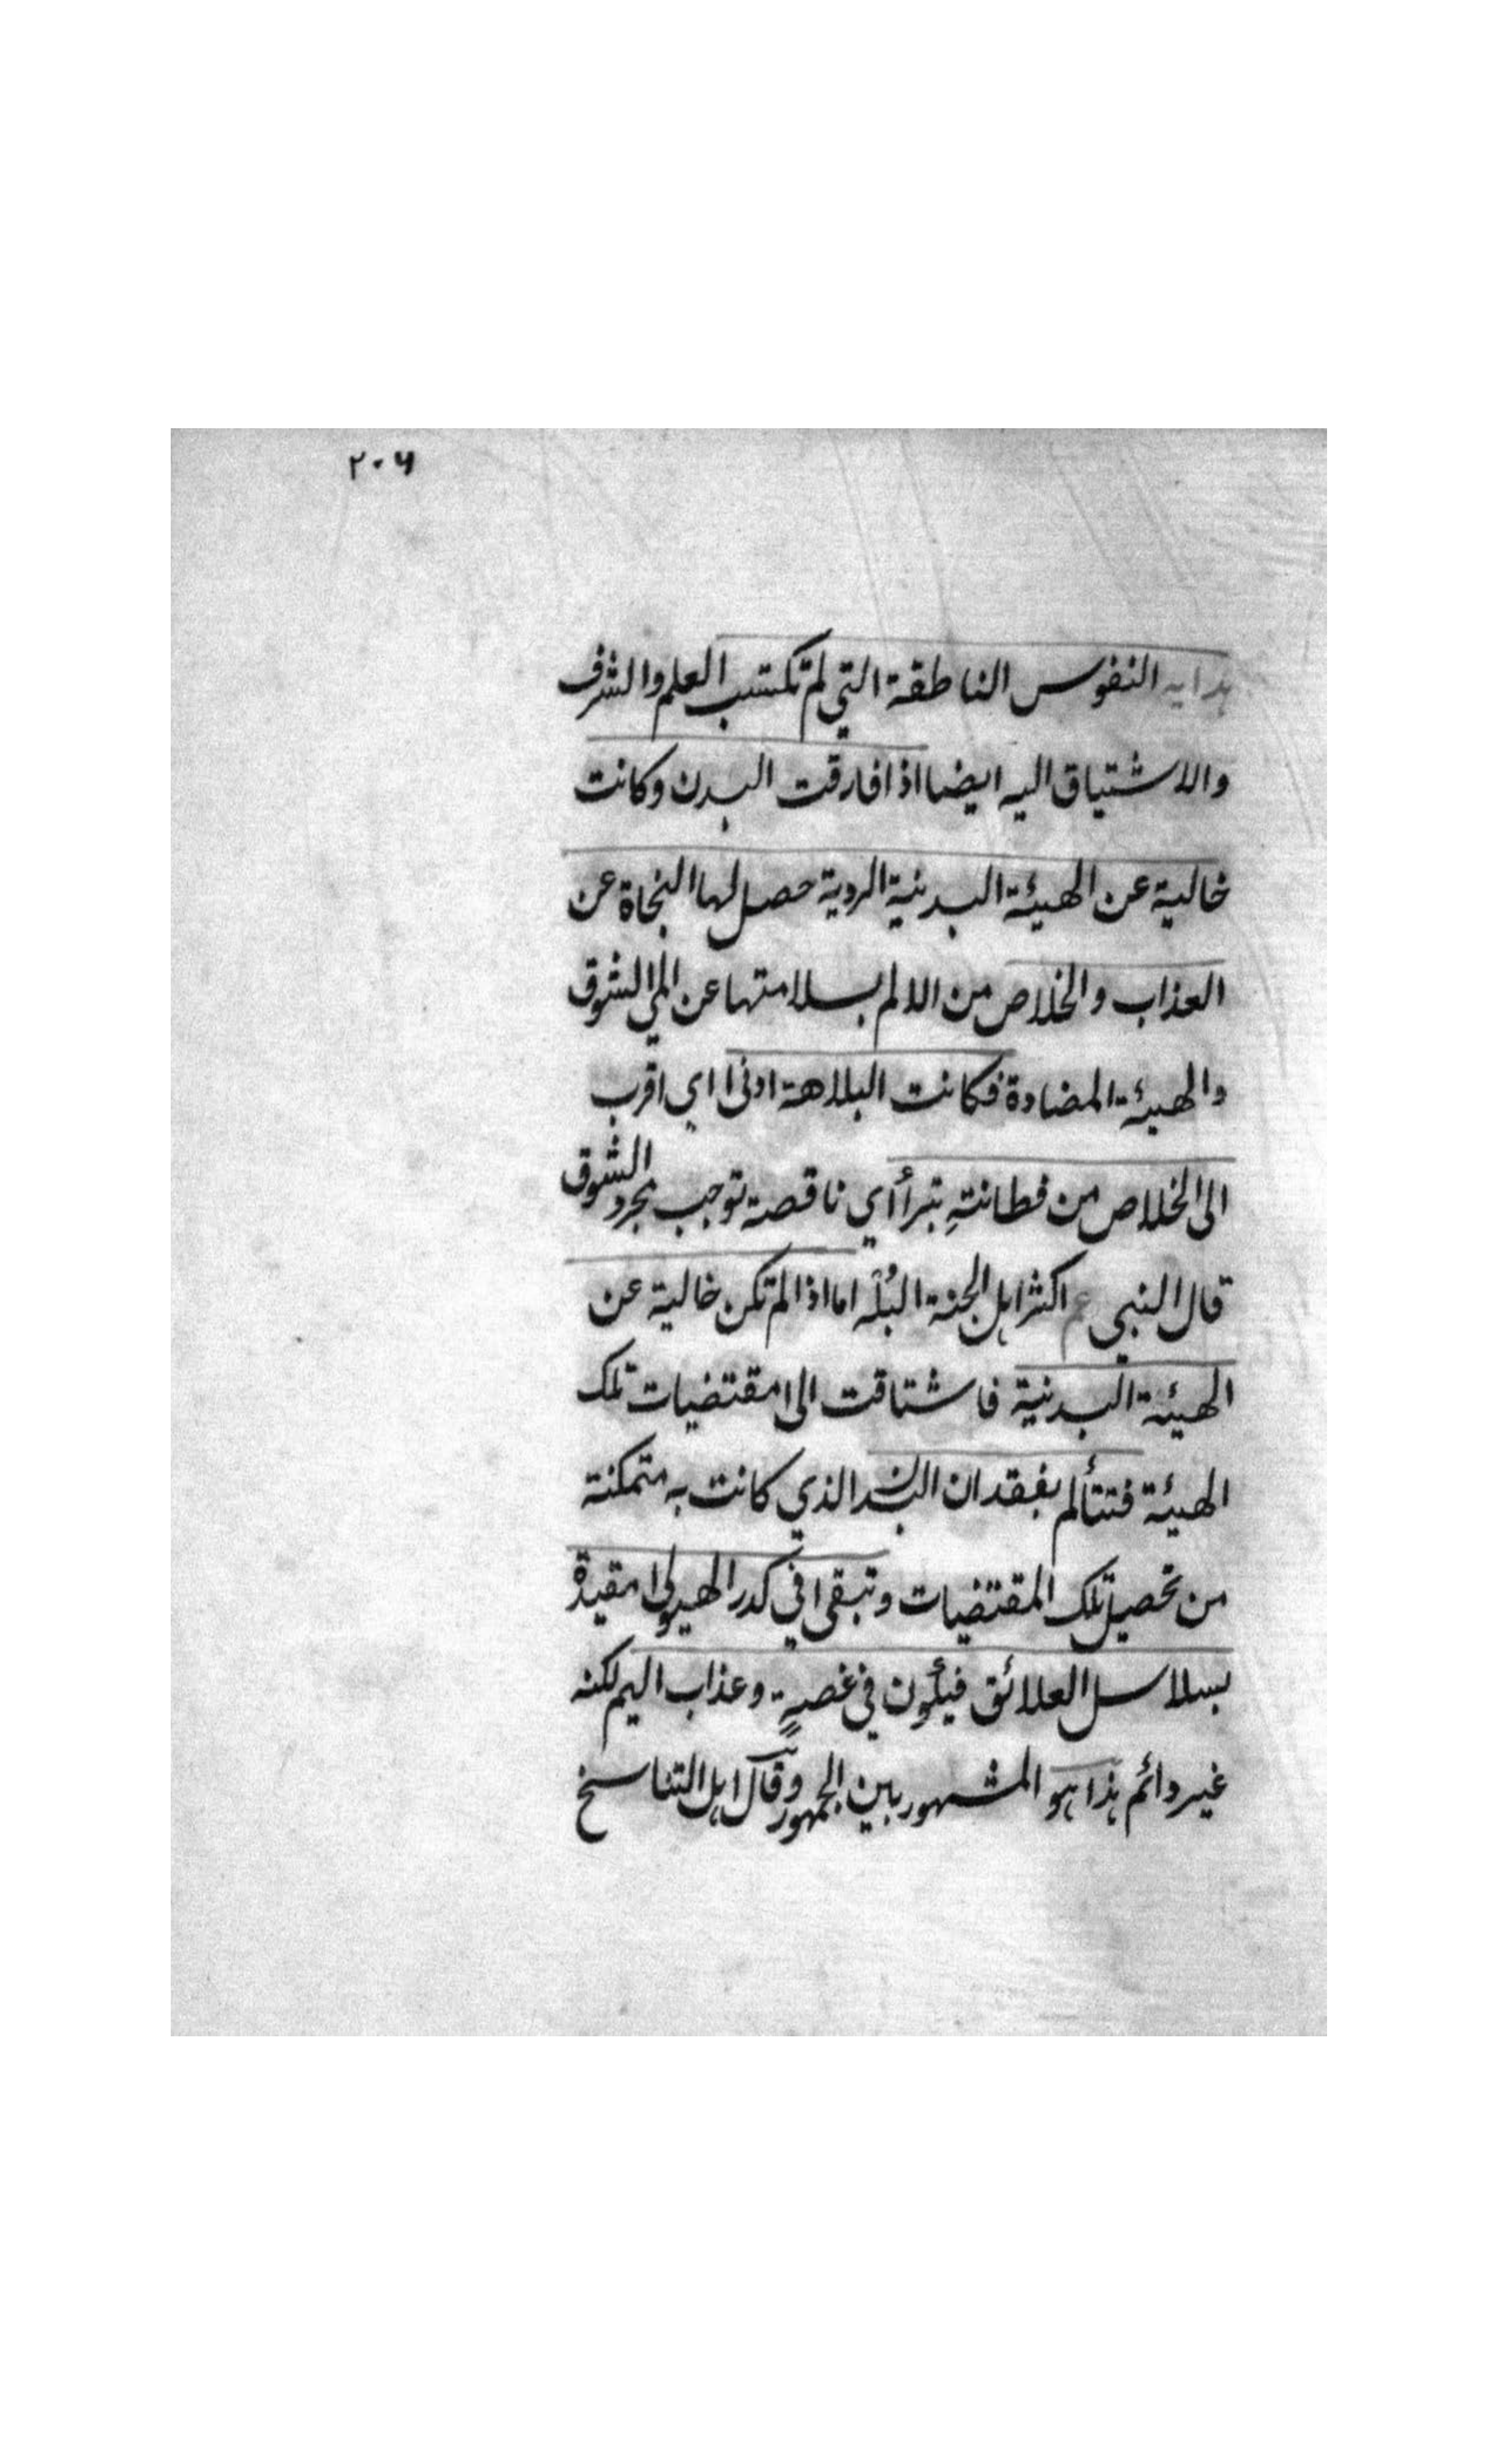 ٢٠٦
هدايه النفوس الناطقة التي لم تكتسب العلم والشرف
والاشتياق اليه ايضا اذا فارقت البدن وكانت
خالية عن الهيئة البدنية الردية حصل لها النجاة عن
العذاب والخلاص من الالم بسلامتها عن المي الشوق
والهيئة المضادة فكانت البلاهة ادنى اي اقرب
الى الخلاص من فطانتةٍ بتراأي ناقصة توجب مجرد الشوق
قال النبي عم اكثر اهل الجنة البُلْه اما اذا لم تكن خالية عن
الهيئة البدنية فاشتاقت الى مقتضيات تلك
الهيئة فتتألم بفقدان البدن الذي كانت به متمكنة
من تحصيل تلك المقتضيات وتبقى في كدر الهيولى مقيدة
بسلاسل العلائق في غصةٍ وعذاب اليم لكنه
غير دائم هذا هو المشهور بين الجمهور وقال اهل التناسخ